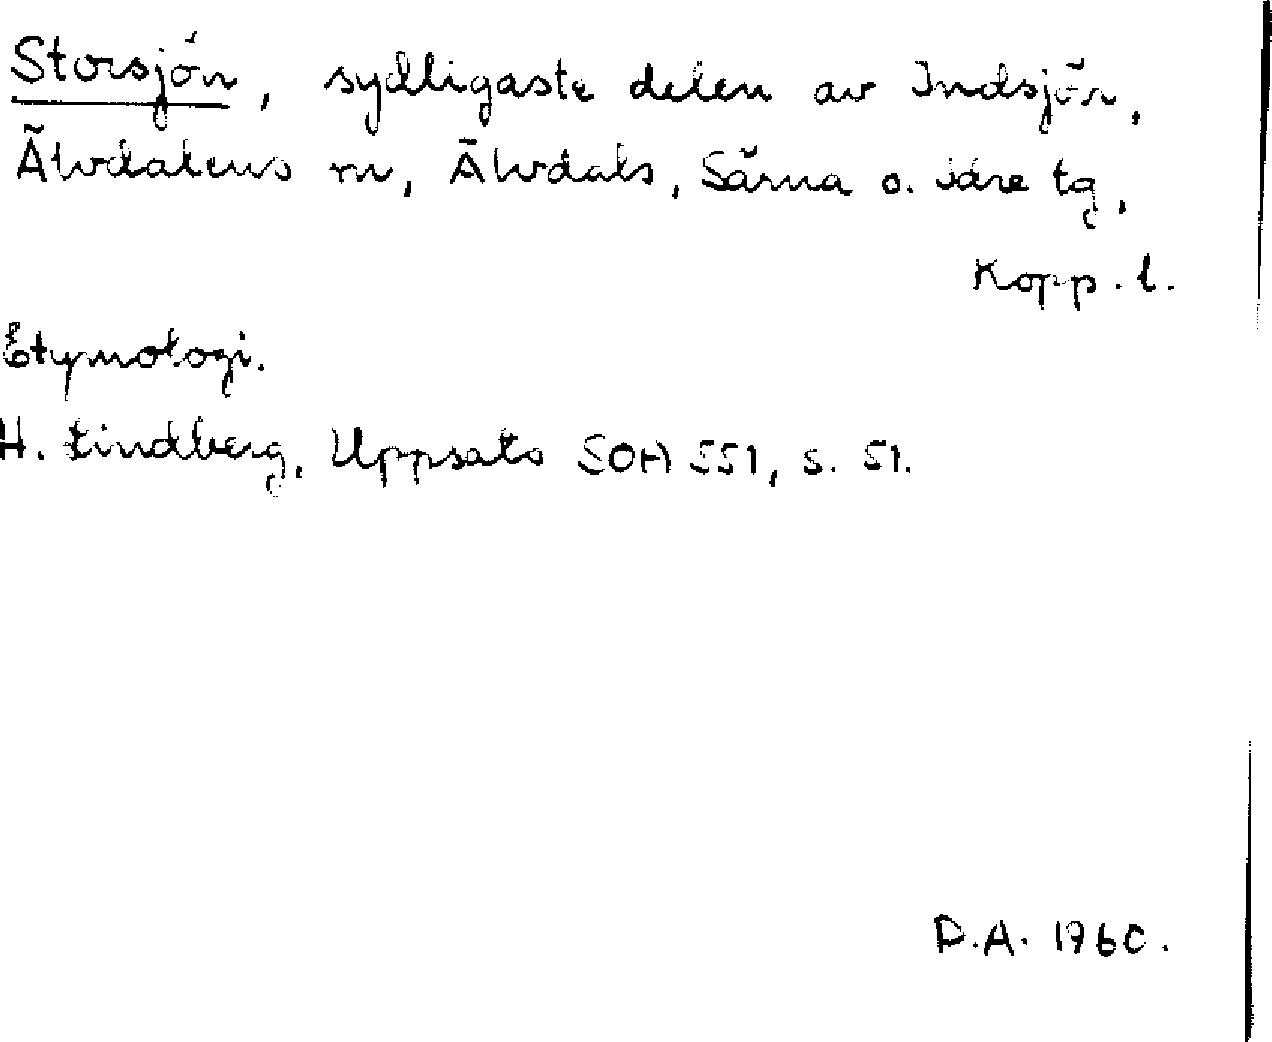 Storsjön, sydligaste delen av Indsjön,
Älvdalens sn, Älvdals, Särna o. Idre tg,
Kopp. l.
Etymologi.
H. Lindberg, Uppsats SOA 551, s. 51.
D.A. 1960.